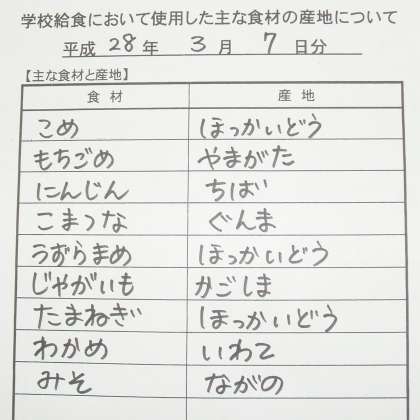 学校給食において使用した主な食材の産地について
平成 28 年 3 月 7 日分
【主な食材と産地】
食材 産地
こめ ほっかいどう
もちごめ やまがた
にんじん ちば
こまつな ぐんま
うずらまめ ほっかいどう
じゃがいも かごしま
たまねぎ ほっかいどう
わかめ いわて
みそ ながの